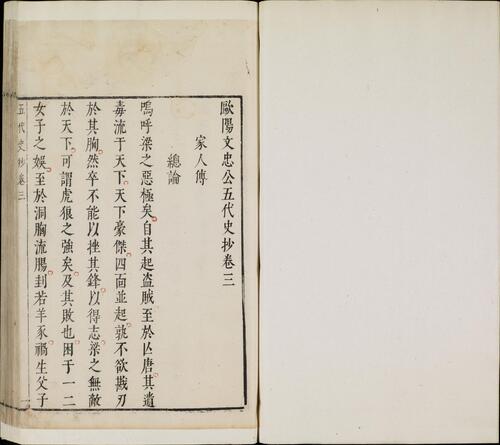 歐陽文忠公五代史抄卷三
家人傳
總論
嗚呼梁之惡極矣自其起盜賊至於亾唐其遺
毒流于天下天下豪傑四面並起孰不欲戡刃
於其胸然卒不能以挫其鋒以得志梁之無敵
於天下可謂虎狼之強矣及其敗也困于一二
女子之娛至於洞胸流腸刲若羊豕禍生父子
五代史抄卷三
一